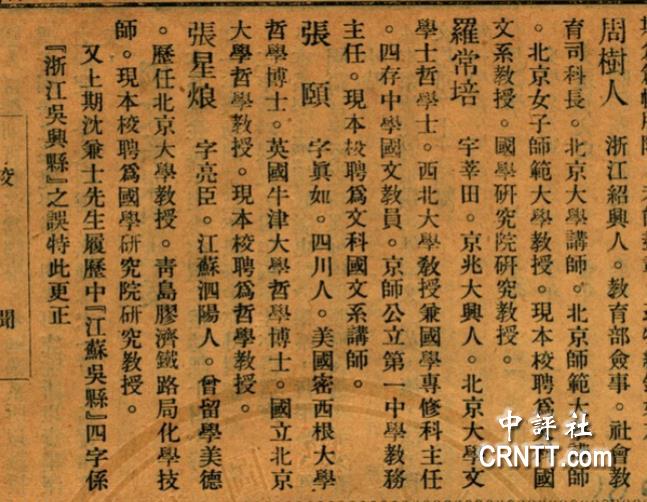 周樹人　浙江紹興人。教育部僉事。社會教
育司科長。北京大學講師。北京師範大學講師
。北京女子師範大學教授。現本校聘爲國
文系教授。國學研究院研究教授。
羅常培　字莘田。京兆大興人。北京大學文
學士哲學士。西北大學敎授兼國學專修科主任
。四存中學國文教員。京師公立第一中學教務
主任。現本校聘爲文科國文系講師。
張　頤　字眞如。四川人。美國密西根大學
哲學博士。英國牛津大學哲學博士。國立北京
大學哲學教授。現本校聘爲哲學教授。
張星烺　字亮臣。江蘇泗陽人。曾留學美德
。歷任北京大學教授。靑島膠濟鐵路局化學技
師。現本校聘爲國學研究院研究教授。
又上期沈兼士先生履歷中『江蘇吳縣』四字係
『浙江吳興縣』之誤特此更正
校　聞
中評社
CRNTT.com